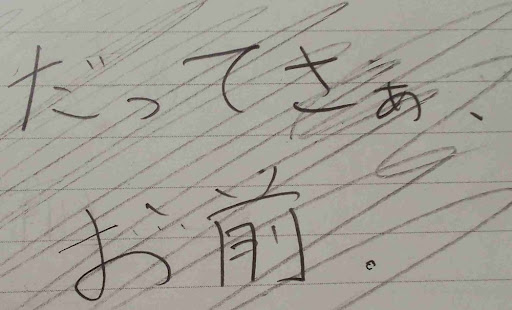 だってさぁ、
お前。